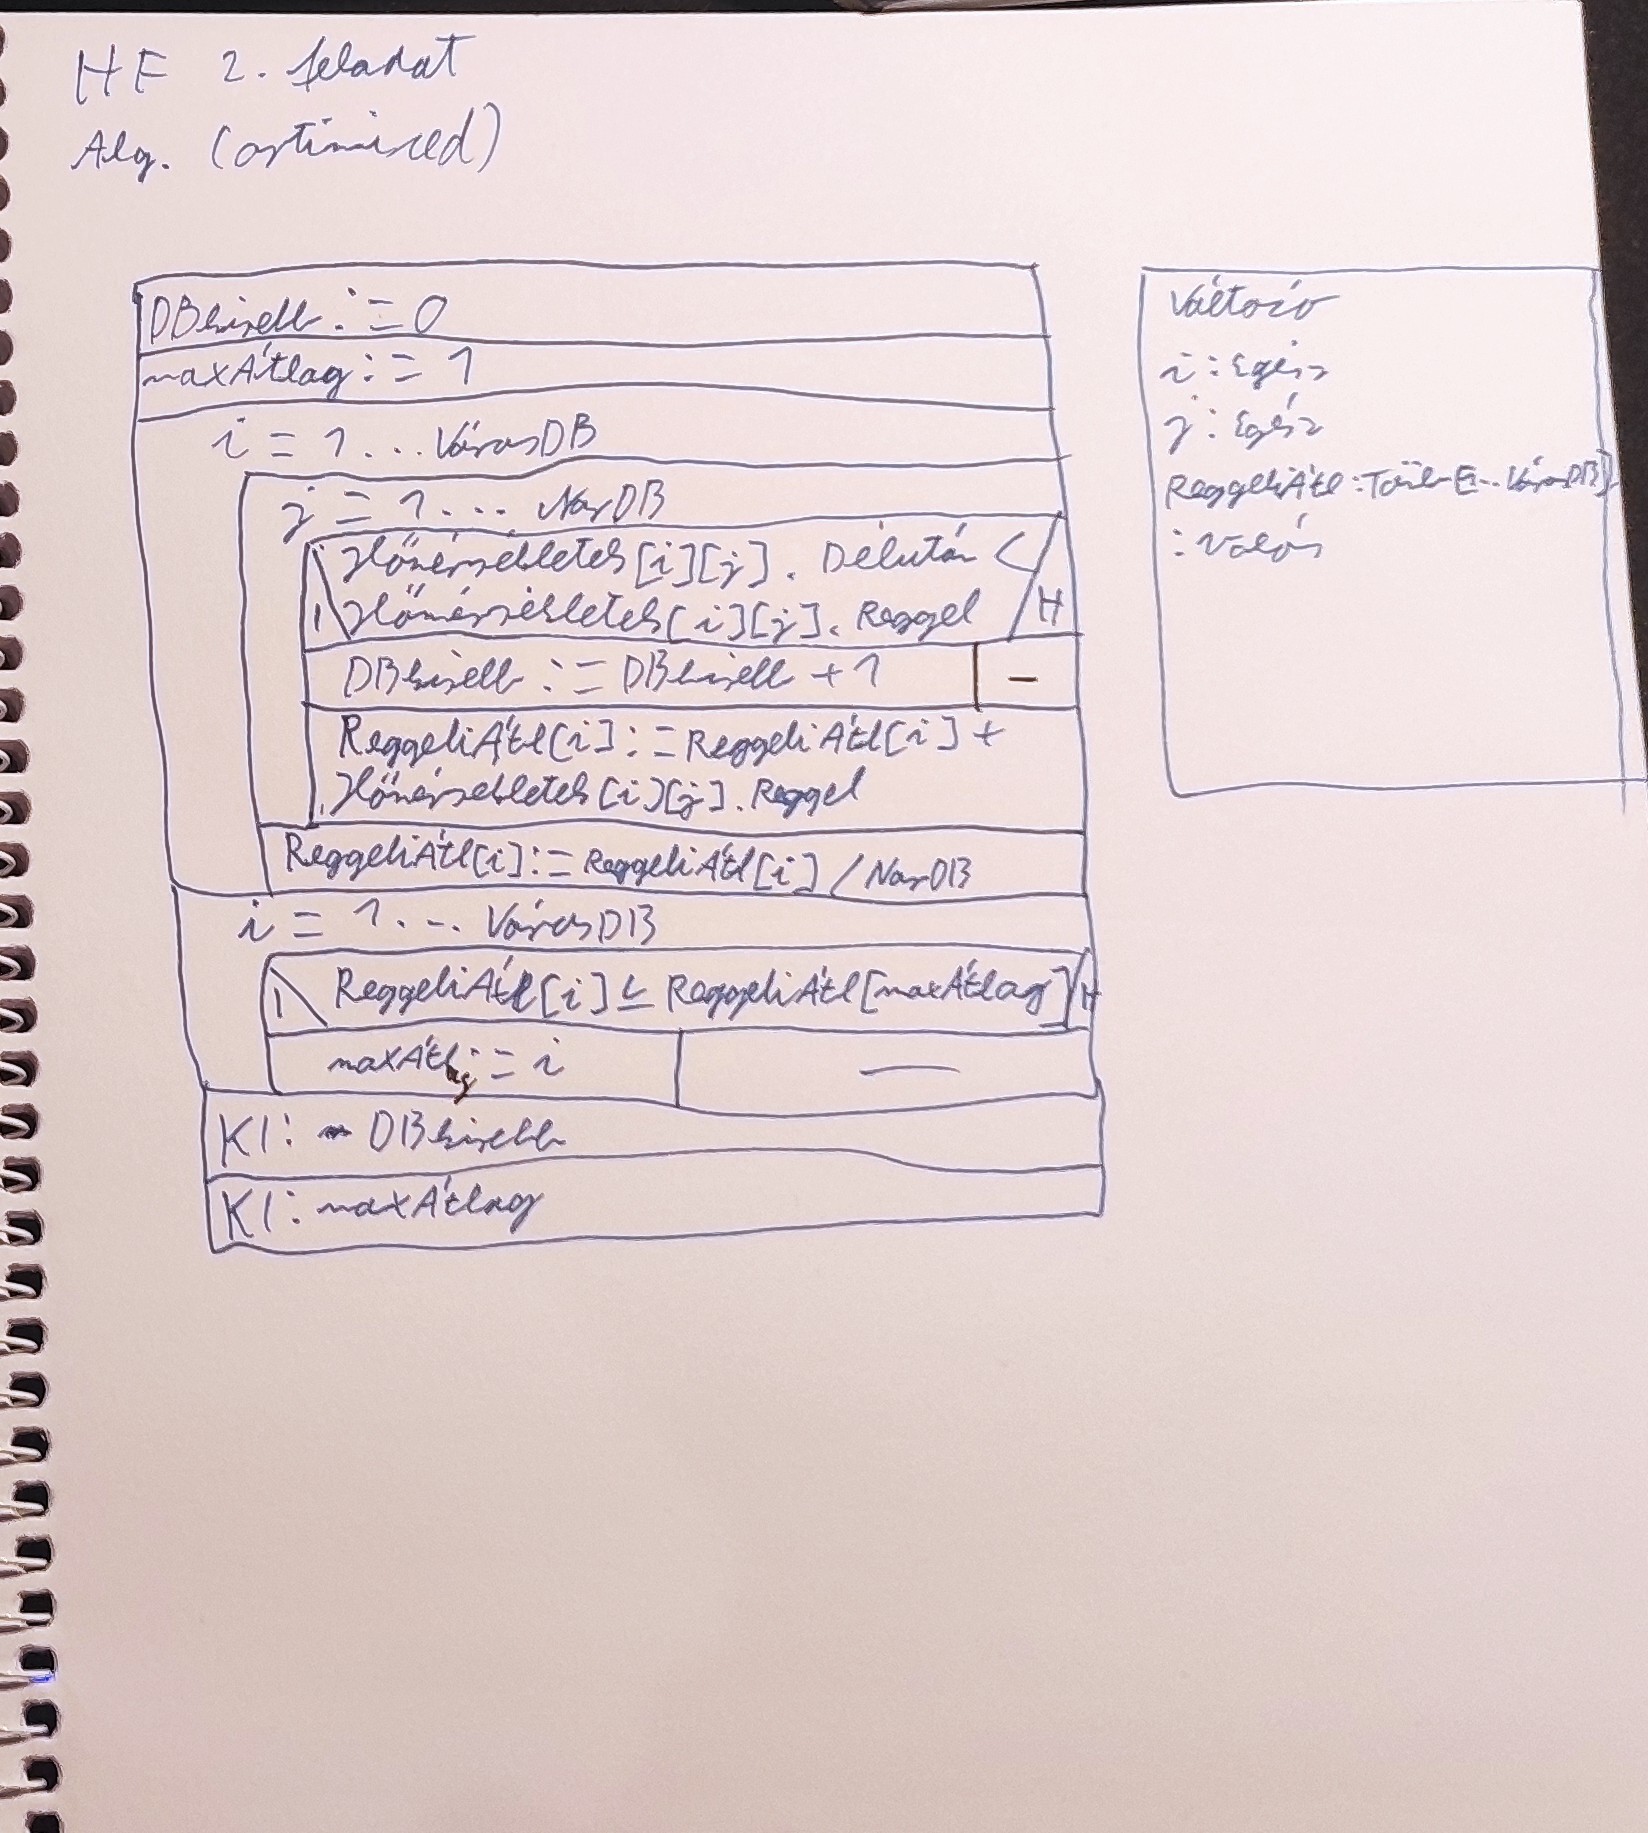 HF 2. feladat
Alg. (optimized)
DBkisebb := 0
maxÁtlag := 1
i = 1... VárosDB
j = 1... NapDB
Hőmérsékletek[i][j]. Délután <
I Hőmérsékletek[i][j]. Reggel H
DBkisebb := DBkisebb + 1 -
ReggeliÁtl[i] := ReggeliÁtl[i] +
Hőmérsékletek[i][j]. Reggel
ReggeliÁtl[i] := ReggeliÁtl[i] / NapDB
i = 1... VárosDB
I ReggeliÁtl[i] ≤ ReggeliÁtl[maxÁtlag] H
maxÁtlag := i —
KI: DBkisebb
KI: maxÁtlag
Változó
i : Egész
j : Egész
ReggeliÁtl : Tömb [1.. VárosDB]
: Valós